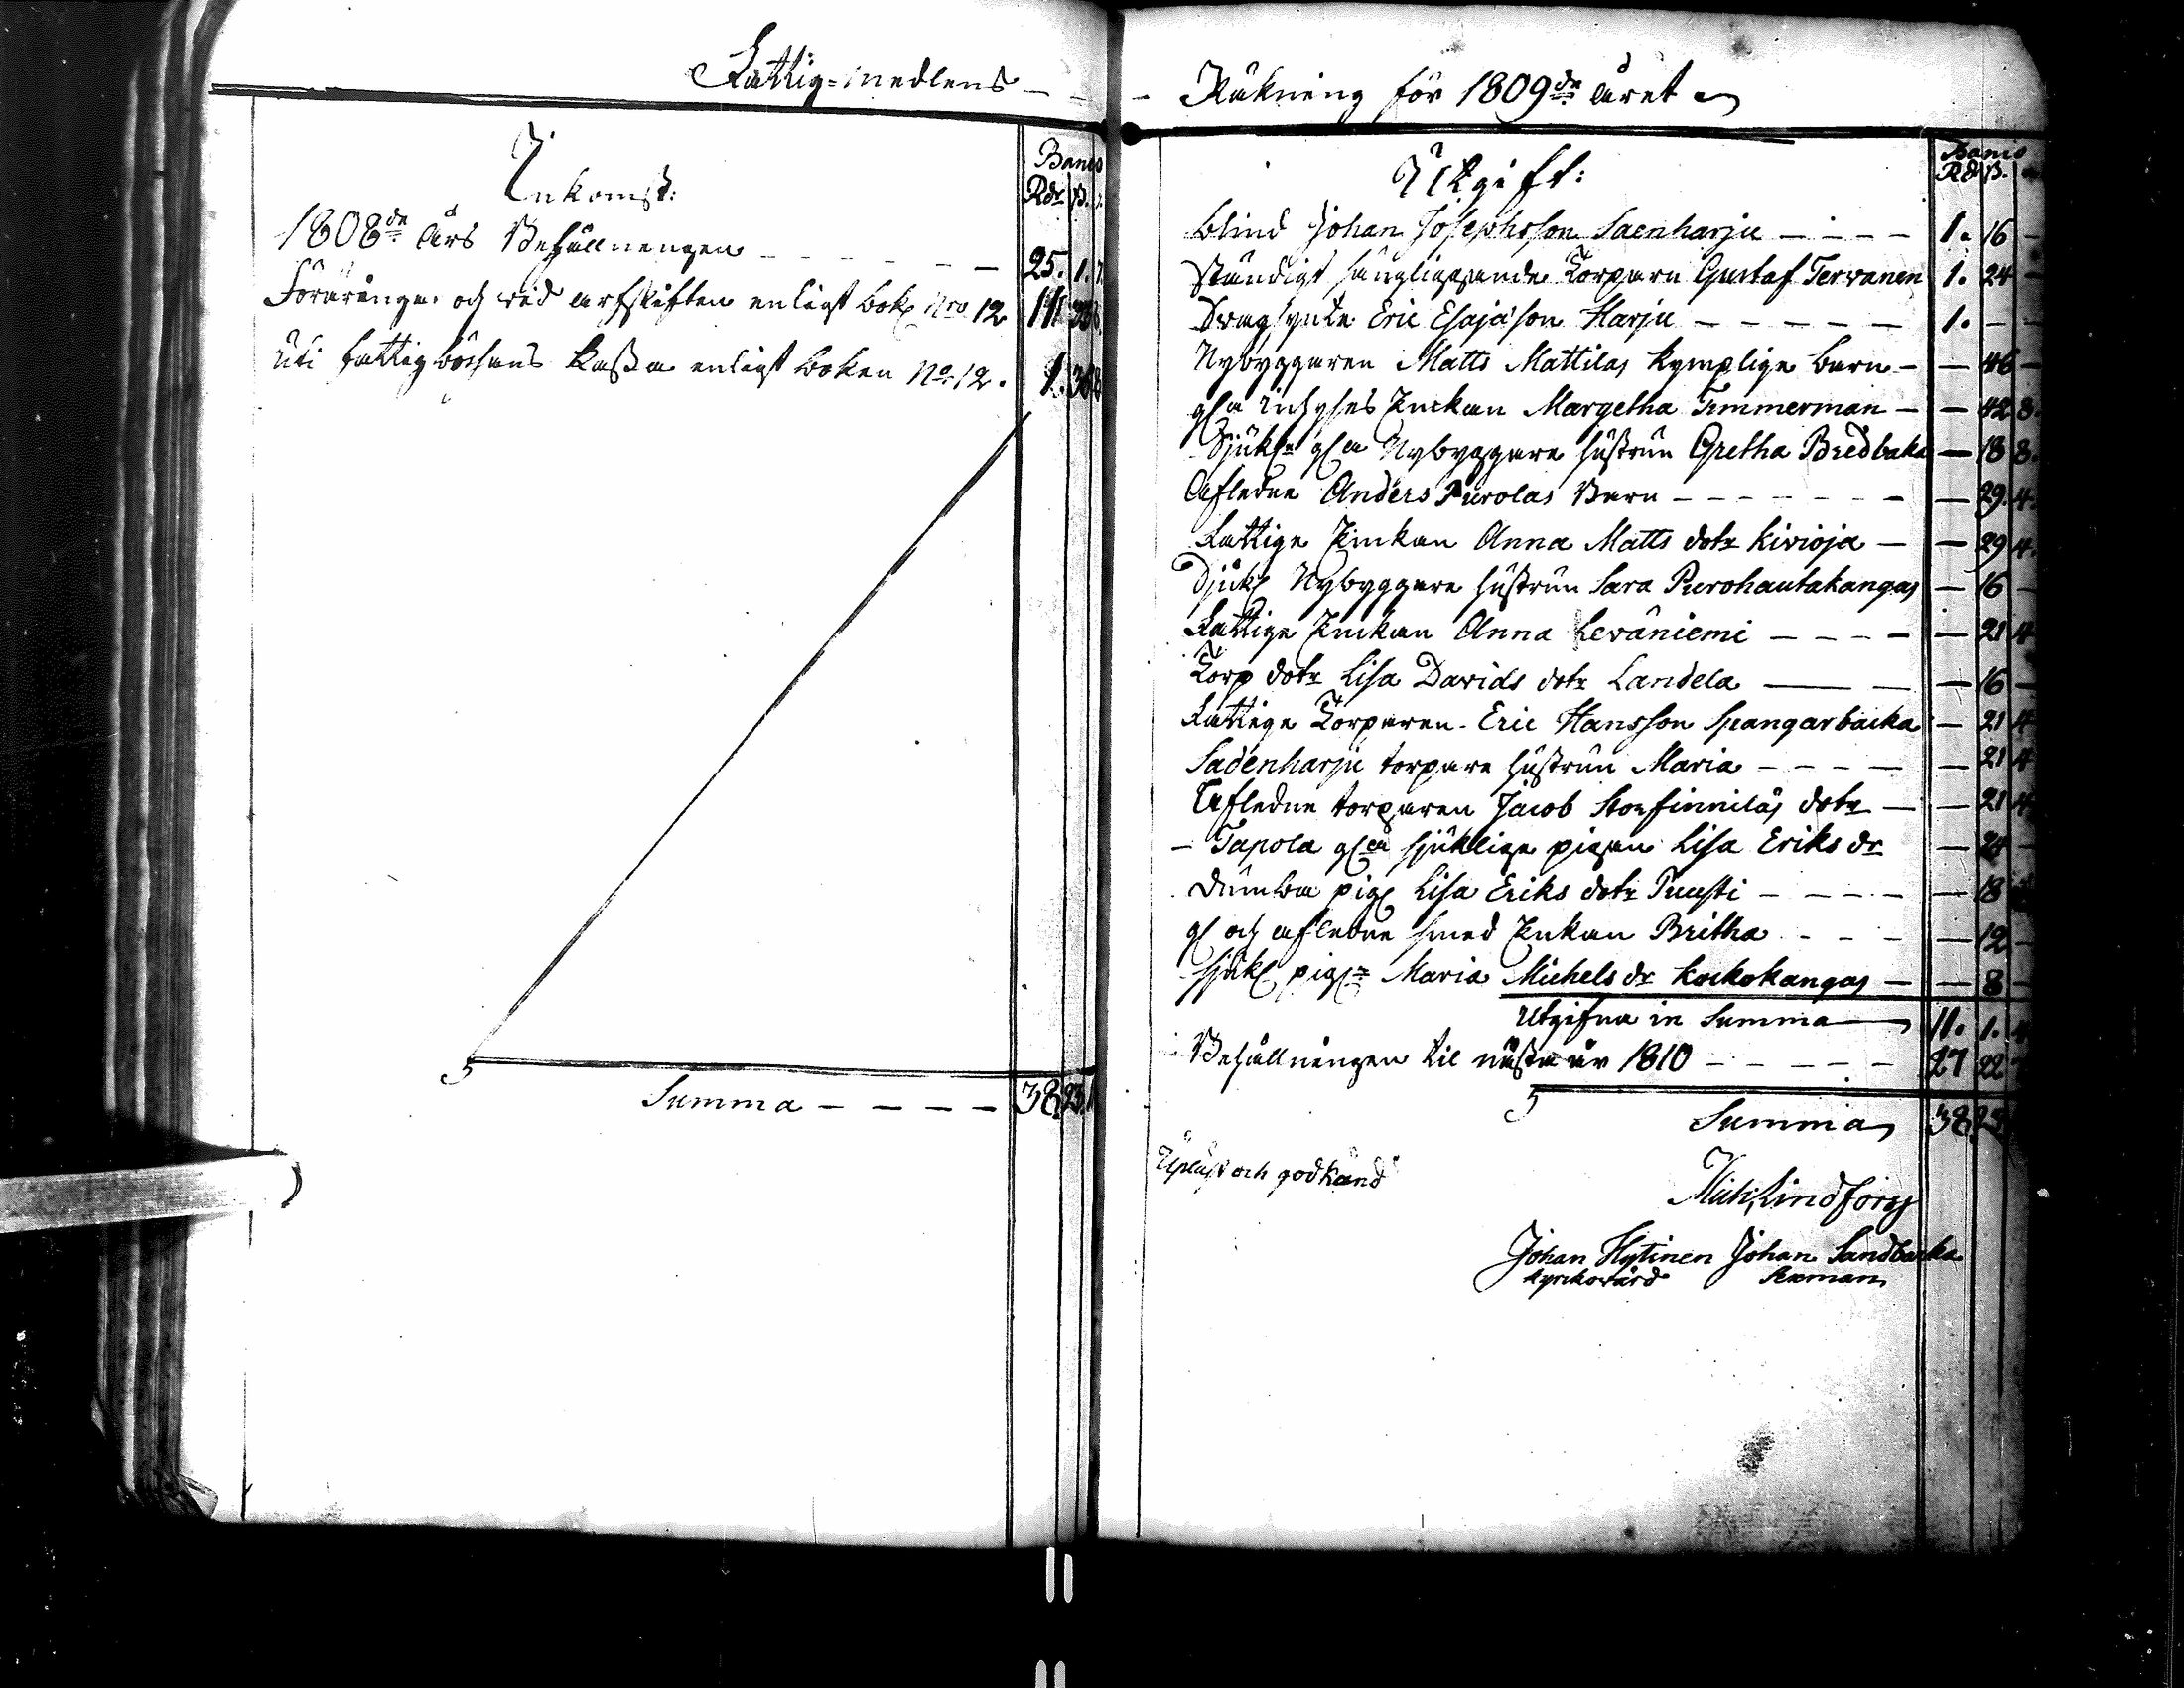 Fattig-medlens
Inkomst:
Banco
Rdr ß.
1808de års Behållningen 25. 1. 7
Föräringar och vid arfskiften enligt bok Nro 12 11
Uti fattigbössans kassa enligt boken No 12. 1.
Summa 38 23.
Räkning för 1809de året
Utgift:
Banco
Rd ß.
blind Johan Josephsson Saenharju 1. 16
ständigt sängliggande Torparn Gustaf Tervanen 1. 24
Svagsynte Eric Esajason Harju 1.
Nybyggaren Matts Mattilas kymplige barn 46
gla inhyses Enkan Margetha Timmerman 42 8.
Sjukl gla Nybyggare hustrun Gretha Bredbaka 18 8.
Afledne Anders Purolas Barn 29. 4.
Fattige Enkan Anna Matts dotr Kivioja 29 4.
Sjukl Nybyggare hustrun Sara Purohautakangas 16
Fattige Enkan Anna Levāniemi 21 4
Torp dotr Lisa Davids dotr Landela 16
Fattige Torparen Eric Hansson Spangarbacka 21 4
Sadenharju torpare hustrun Maria 21 4
Afledne torparen Jacob Storfinniläs dotr 21 4
Tapola gla sjuklige pigan Lisa Eriks dr 24
Dumba pig Lisa Eriks dotr Puusti 18
gl och afledne smed Enkan Britha 12
sjukl pig Maria Michels dr Kockokangas 8
Utgifna in Summa 11. 1. 4
Behållningen til nästa år 1810 27 22 7
Summa 38 23
Upläst och godkänd
Mich, Lindfors
Johan Hytinen Johan Sandbacka
kyrckovärd Sexman